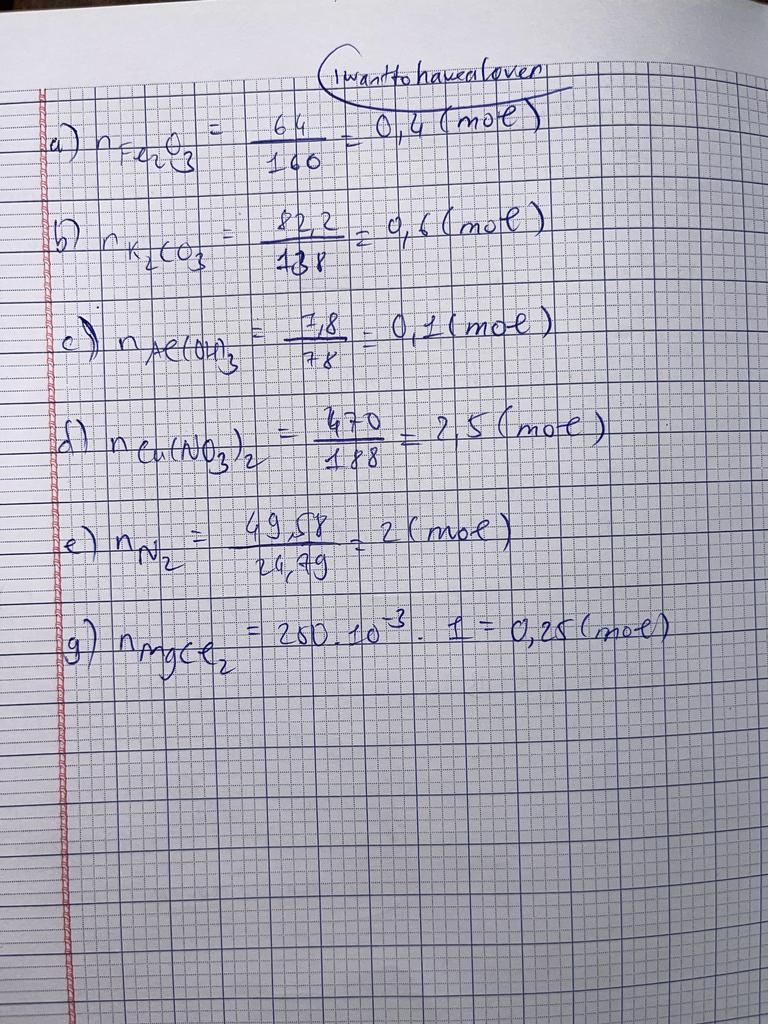 iwanttohavealover
a) nFe₂O₃ = 64/160 = 0,4 (mol)
b) nK₂CO₃ = 82,2/138 = 0,6 (mol)
c) nAl(OH)₃ = 7,8/78 = 0,1 (mol)
d) nCu(NO₃)₂ = 470/188 = 2,5 (mol)
e) nN₂ = 49,58/24,79 = 2 (mol)
g) nMgCl₂ = 250.10⁻³. 1 = 0,25 (mol)